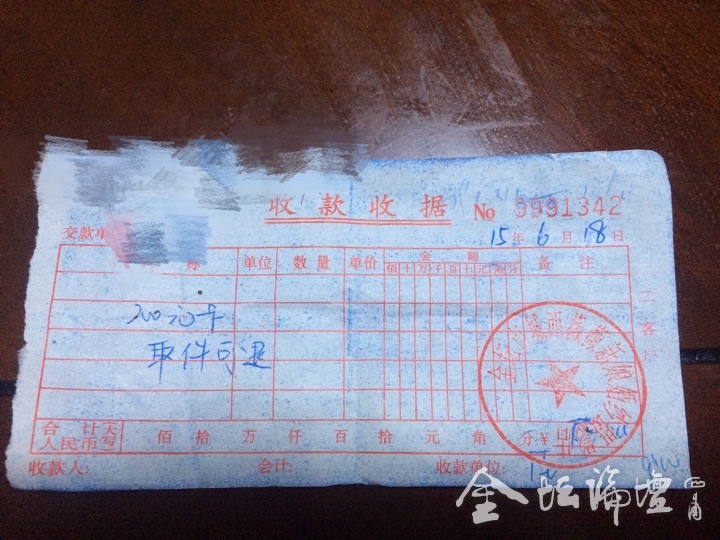 收款收据 No 9991342
交款单 15年6月18日
称 单位 数量 单价 金额 备注
佰十万千百十元角分
加油卡
取件可退
二客户
合计大
人民币写 佰拾万仟百拾元角分¥
收款人: 会计: 收款单位:
金坛论坛